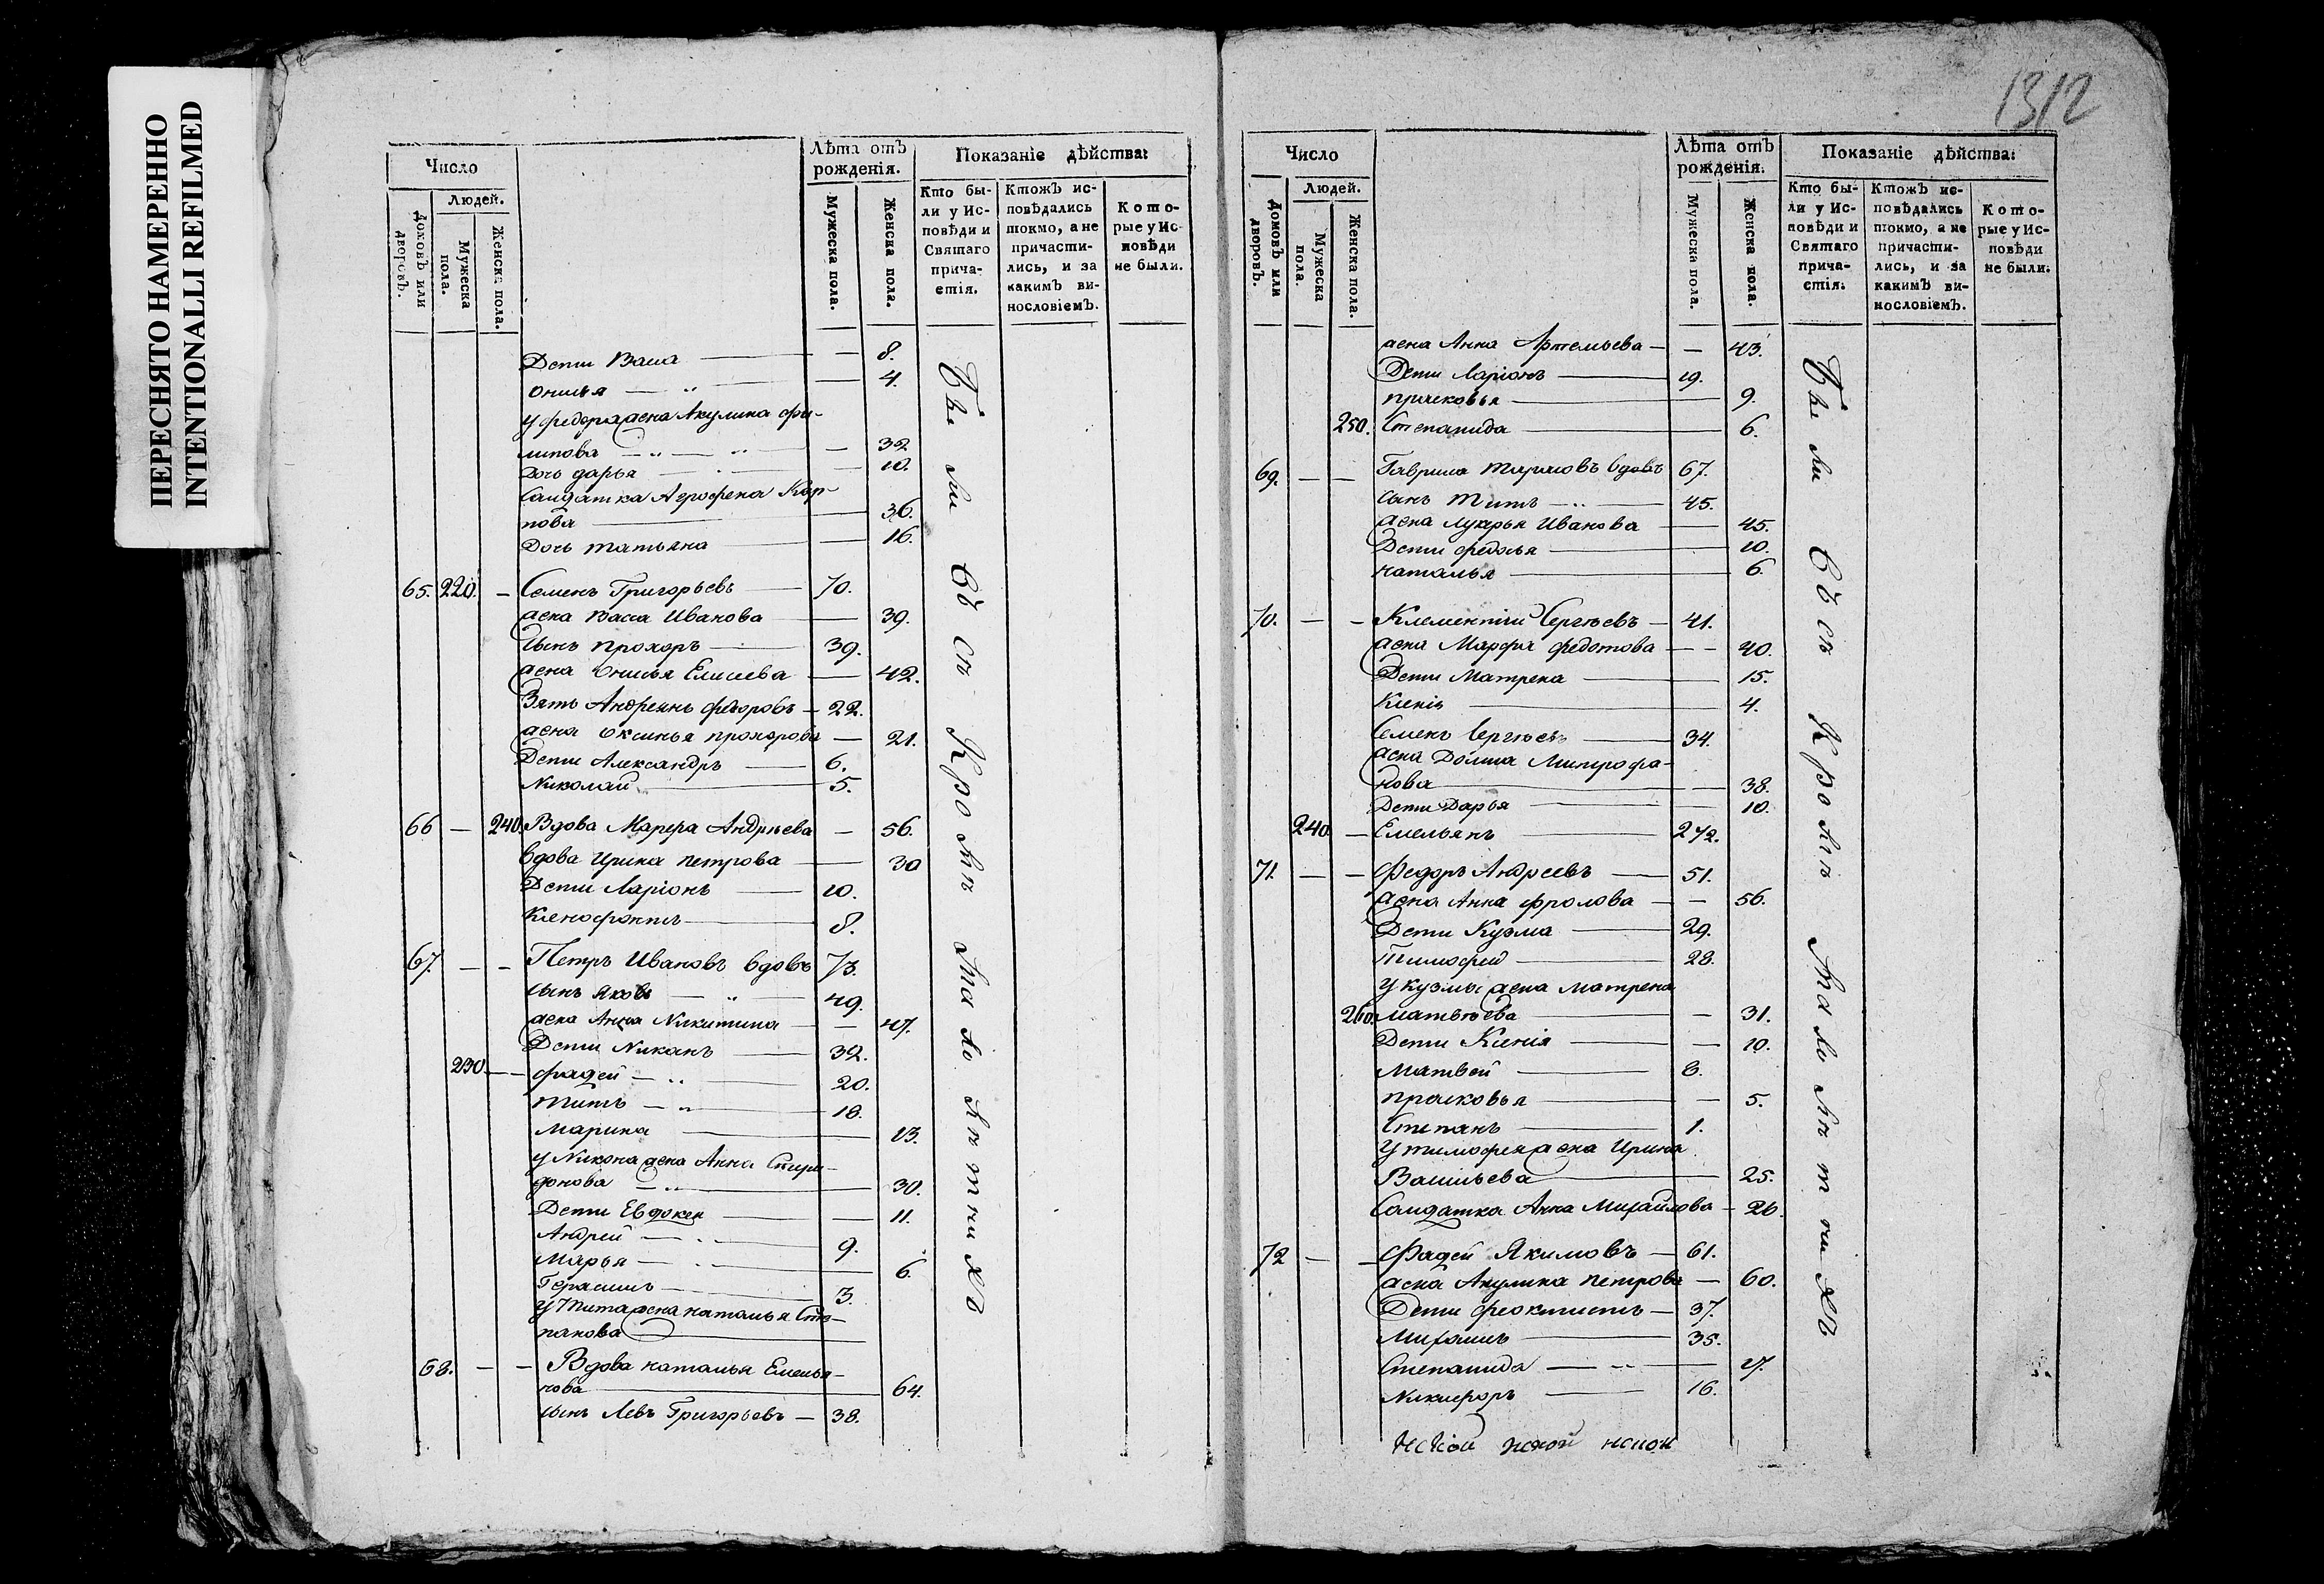 ПЕРЕСНЯТО НАМЕРЕННО
INTENTIONALLI REFILMED
Число
Лѣта отъ рожденія.
Показаніе дѣйства:
Людей.
Домовъ или дворовъ.
Мужеска пола.
Женска пола.
Мужеска пола.
Женска пола.
Кто бы-
ли у Ис-
повѣди и
Святаго
прича-
стія.
Ктожъ ис-
повѣдались
токмо, а не
причасти-
лись, и за
какимъ ви-
нословіемъ.
Кото-
рые у Ис-
повѣди
не были.
Дети Васа — 8.
Онисья — 4.
у федора жена Акулина фи-
липова — 32
Дочь дарья — 10.
Салдатка Агрофена Кар-
пова — 36.
Дочь татьяна — 16.
65. 220. — Семенъ Григорьевъ — 70.
жена Васса Иванова — 39.
Сынъ прохоръ — 39.
жена Онисья Елисева — 42.
Зять Андреянъ федоровъ — 22.
жена оксинья прохорова — 21.
Дети Александръ — 6.
Николай — 5.
66 — 240. Вдова Марфа Андрѣева — 56.
вдова Ирина петрова — 30
Дети Ларіонъ — 10.
Ксенофонтъ — 8.
67. — — Петръ Ивановъ вдовъ 73.
сынъ яковъ — 49.
жена Анна Никитина — 47.
Дети Никанъ — 32.
230. — фадей — 20.
Титъ — 18.
Марина — 13.
у Никона жена Анна Спири-
донова — 30.
Дети Евдокея — 11.
Андрей — 9.
Марья — 6.
Герасимъ — 3.
У Тита жена наталья Сте-
панова —
68. — — Вдова наталья Емелья-
нова — 64.
сынъ Левъ Григорьевъ — 38.
Бы ли Всѣ Кро мѣ ма ло лѣ тни хъ
1312
Число
Лѣта отъ рожденія.
Показаніе дѣйства:
Людей.
Домовъ или дворовъ.
Мужеска пола.
Женска пола.
Мужеска пола.
Женска пола.
Кто бы-
ли у Ис-
повѣди и
Святаго
прича-
стія.
Ктожъ ис-
повѣдались
токмо, а не
причасти-
лись, и за
какимъ ви-
нословіемъ.
Кото-
рые у Ис-
повѣди
не были.
жена Анна Артемьева — 43.
Дети Ларіонъ — 19.
прасковья — 9.
250. Степанида — 6.
69. — — Гаврила вдовъ 67.
сынъ Титъ — 45.
жена лукерья Иванова — 45.
Дети федосья — 10.
наталья — 6.
70. — — Клементій Сергѣевъ — 41.
жена Марфа федотова — 40.
Дети Матрена — 15.
Ксенія — 4.
Семенъ Сергѣевъ — 34.
жена Домна Митрофа-
нова — 38.
Дети Дарья — 10.
240 — Емельянъ — 2 1/2.
71. — — Федоръ Андреевъ — 51.
жена Анна фролова — 56.
Дети Кузма — 29.
Тимофей — 28.
У кузмы жена матрена
260. матвѣева — 31.
Дети Ксенія — 10.
Матвей — 8.
прасковья — 5.
Степанъ — 1.
У тимофея жена Ирина
Васильева — 25.
Салдатка Анна Михайлова — 26.
72 — — Фадей Якимовъ — 61.
жена Акулина петрова — 60.
Дети феоктистъ — 37.
— 35.
Степанида — 17.
Никифоръ — 16.
Бы ли Всѣ Кро мѣ ма ло лѣ т ни хъ